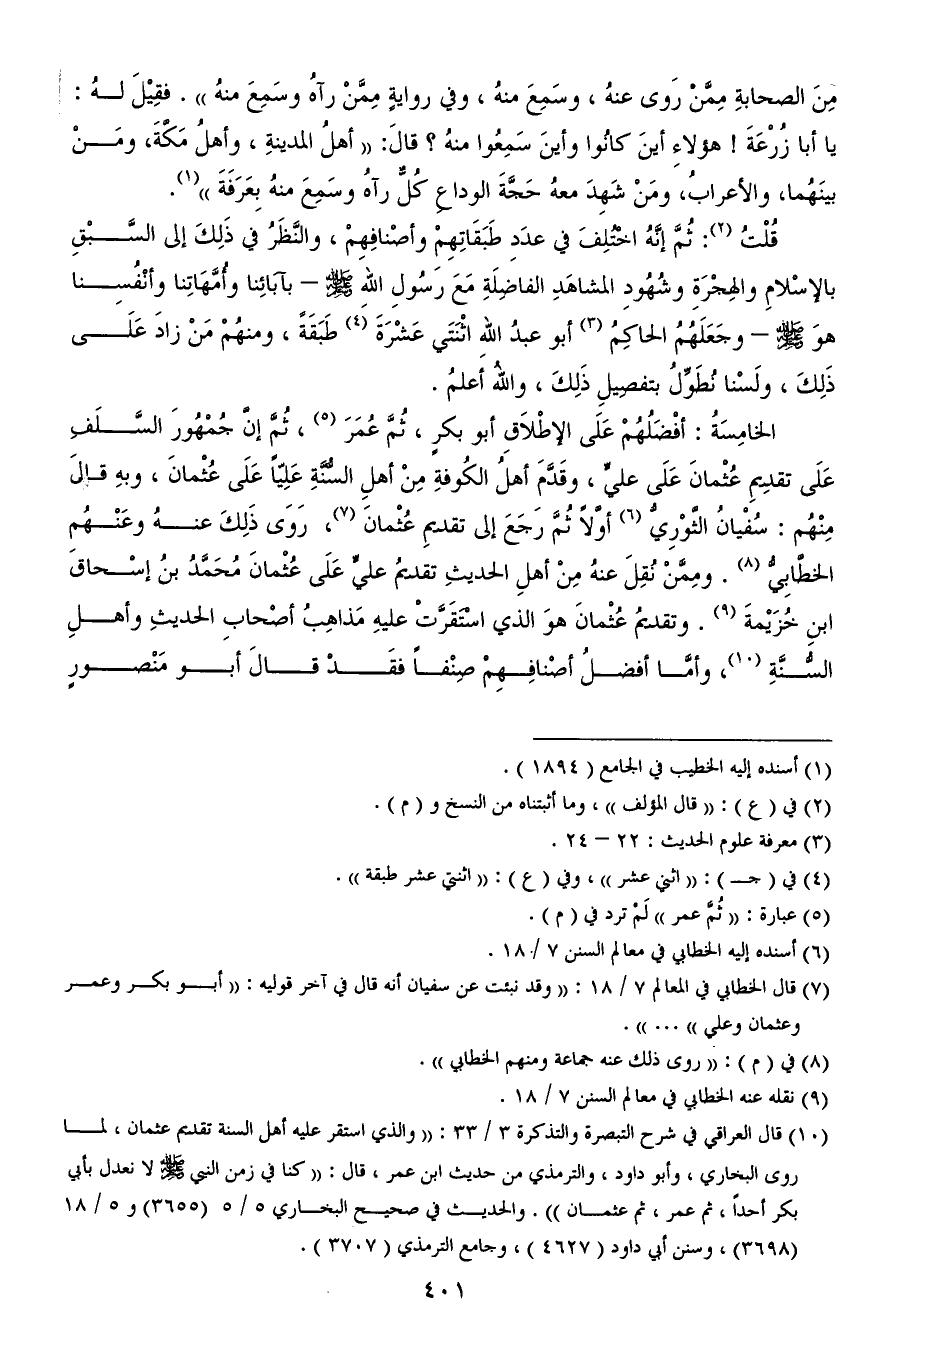 مِنَ الصحابةِ مِمَّنْ رَوى عنهُ ، وسَمِعَ منهُ ، وفي روايةٍ مِمَّنْ رآهُ وسَمِعَ منهُ )) . فقِيْلَ لـهُ :
يا أبا زُرْعَةَ ! هؤلاءِ أينَ كانُوا وأينَ سَمِعُوا منهُ ؟ قالَ: (( أهلُ المدينةِ ، وأهلُ مَكَّةَ، ومَـنْ
بينَهُما، والأعرابُ، ومَنْ شَهِدَ معهُ حَجَّةَ الوداعِ كُلٌّ رآهُ وسَمِعَ منهُ بِعَرَفَةَ ))(١).
قُلْتُ (٢): ثُمَّ إنَّهُ اخْتُلِفَ في عددِ طَبَقَاتِهِمْ وأصْنافِهِمْ ، والنَّظَرُ في ذَلِكَ إلى السَّـبْقِ
بالإسْلامِ والهِجْرَةِ وشُهُودِ المشاهَدِ الفاضِلَةِ مَعَ رَسُولِ اللهِ ﷺ – بآبائِنا وأُمَّهَاتِنا وأنْفُسِـنا
هوَ ﷺ – وجَعَلَهُمُ الحاكِمُ (٣) أبو عبدُ اللهِ اثْنَتَي عَشْرَةَ (٤) طَبَقَةً ، ومنهُمْ مَنْ زادَ عَلَـى
ذَلِكَ ، ولَسْنا نُطَوِّلُ بتفصيلِ ذَلِكَ ، واللهُ أعلمُ .
الخامِسَةُ : أفْضَلُهُمْ عَلَى الإطْلاقِ أبو بكرٍ ، ثُمَّ عُمَرَ (٥) ، ثُمَّ إنَّ جُمْهُورَ السَّـلَفِ
عَلَى تقديمِ عُثْمانَ عَلَى عليٍّ ، وقَدَّمَ أهلُ الكُوفةِ مِنْ أهلِ السُّنَّةِ عَلِيّاً عَلَى عُثْمانَ ، وبهِ قـالَ
مِنْهُم : سُفْيانُ الثَّوْرِيُّ (٦) أوَّلاً ثُمَّ رَجَعَ إلى تقديمِ عُثْمانَ (٧)، رَوَى ذَلِكَ عنـهُ وعَنْـهُم
الخطَّابيُّ (٨) . ومِمَّنْ نُقِلَ عنهُ مِنْ أهلِ الحديثِ تقديمُ عليٍّ عَلَى عُثْمانَ مُحَمَّدُ بنُ إسْـحاقَ
ابنِ خُزَيْمةَ (٩) . وتقديمُ عُثْمانَ هوَ الذي اسْتَقَرَّتْ عليهِ مَذاهِبُ أصْحابِ الحديثِ وأهـلِ
السُّـنَّةِ (١٠)، وأمَّـا أفضـلُ أصْنافِـهِمْ صِنْفـاً فقَـدْ قـالَ أبـو مَنْصـورٍ
(١) أسنده إليه الخطيب في الجامع ( ١٨٩٤ ) .
(٢) في ( ع ) : (( قال المؤلف )) ، وما أثبتناه من النسخ و ( م ) .
(٣) معرفة علوم الحديث : ٢٢ – ٢٤ .
(٤) في ( جـ ) : (( اثني عشر )) ، وفي ( ع ) : (( اثنتي عشر طبقة )) .
(٥) عبارة : (( ثُمَّ عمر )) لَمْ ترد في ( م ) .
(٦) أسنده إليه الخطابي في معالم السنن ٧ /١٨ .
(٧) قال الخطابي في المعالم ٧ / ١٨ : (( وقد نبئت عن سفيان أنه قال في آخر قوليه : (( أبـو بكـر وعمـر
وعثمان وعلي )) ... )) .
(٨) في ( م ) : (( روى ذلك عنه جماعة ومنهم الخطابي )) .
(٩) نقله عنه الخطابي في معالم السنن ٧ / ١٨ .
(١٠) قال العراقي في شرح التبصرة والتذكرة ٣ / ٣٣ : (( والذي استقر عليه أهل السنة تقديم عثمان ، لمـا
روى البخاري ، وأبو داود ، والترمذي من حديث ابن عمر ، قال : (( كنا في زمن النبي ﷺ لا نعدل بأبي
بكر أحداً ، ثم عمر ، ثم عثمـان )) . والحديـث في صحيـح البخـاري ٥ / ٥ (٣٦٥٥) و ٥ / ١٨
(٣٦٩٨) ، وسنن أبي داود ( ٤٦٢٧ ) ، وجامع الترمذي ( ٣٧٠٧ ) .
٤٠١